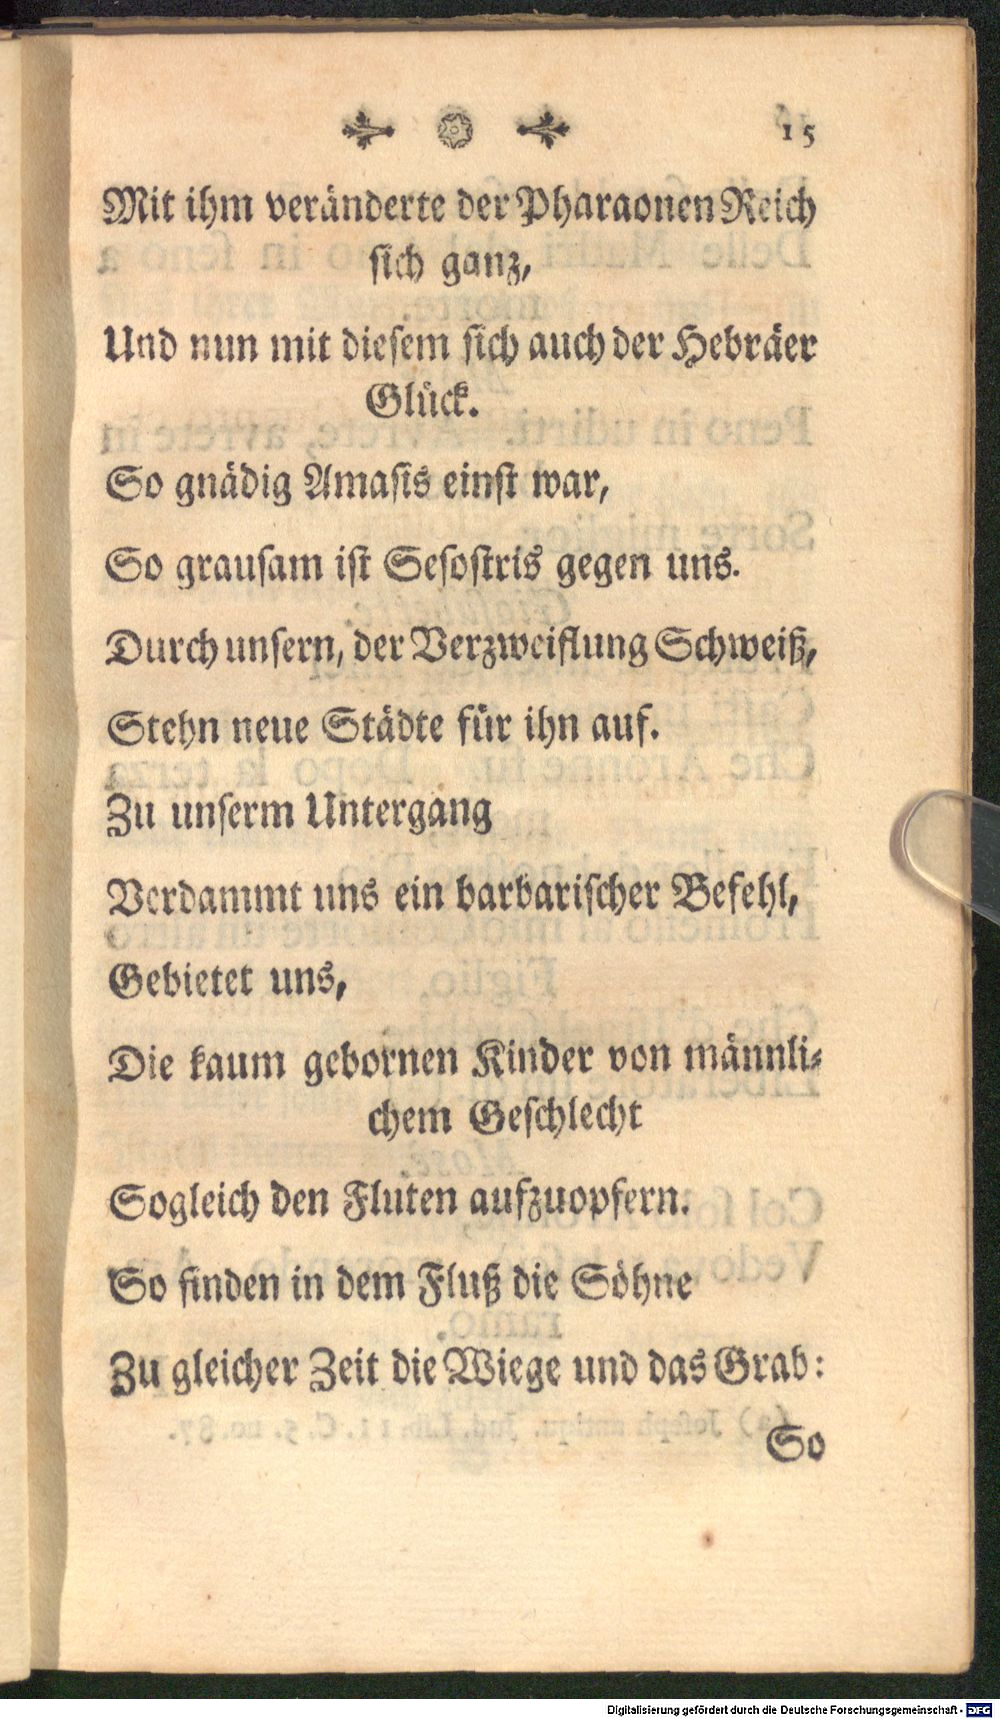 15
Mit ihm veränderte der Pharaonen Reich
sich ganz,
Und nun mit diesem sich auch der Hebräer
Glück.
So gnädig Amasis einst war,
So grausam ist Sesostris gegen uns.
Durch unsern, der Verzweiflung Schweiß,
Stehn neue Städte für ihn auf.
Zu unserm Untergang
Verdammt uns ein barbarischer Befehl,
Gebietet uns,
Die kaum gebornen Kinder von männli-
chem Geschlecht
Sogleich den Fluten aufzuopfern.
So finden in dem Fluß die Söhne
Zu gleicher Zeit die Wiege und das Grab:
So
Digitalisierung gefördert durch die Deutsche Forschungsgemeinschaft - DFG